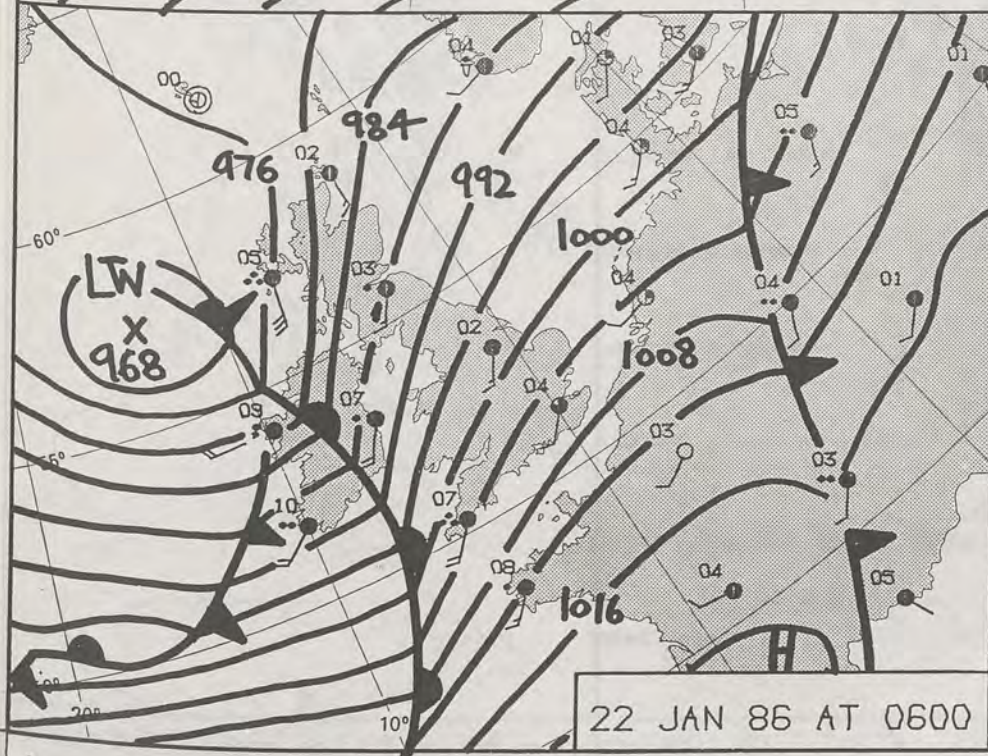 04
04
03
01
00
984
05
04
976
02
992
60°
1000
05
03
04
04
01
LOW
X
968
02
1008
09
07
04
03
03
10
07
08
1016
04
05
H
20°
10°
22 JAN 86 AT 0600